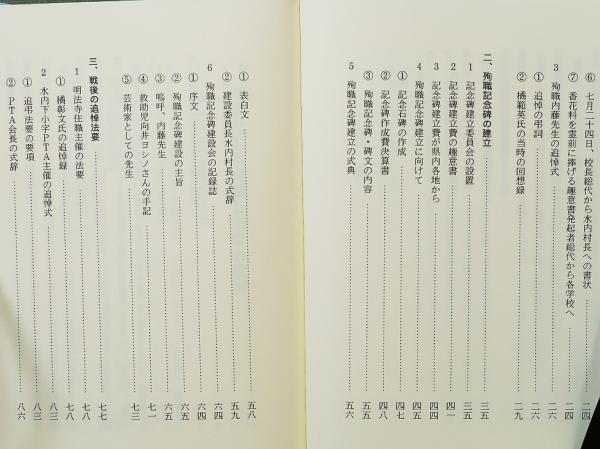 ⑥ 七月二十四日、校長総代から水内村長への書状……二四
⑦ 香花料を霊前に捧げる趣意書発起者総代から各学校へ……二四
3 殉職内藤先生の追悼式……二六
① 追悼の弔詞……二六
② 橘範英氏の当時の回想録……二九
二、殉職記念碑の建立……三五
1 記念碑建立委員会の設置……三五
2 記念碑建立費の趣意書……四一
3 記念碑建立費が県内各地から……四四
4 殉職記念碑建立に向けて……四五
① 記念石碑の作成……四七
② 記念碑作成費決算書……四八
③ 殉職記念碑・碑文の内容……五五
5 殉職記念碑建立の式典……五六
① 表白文……五八
② 建設委員長水内村長の式辞……五九
6 殉職記念碑建設会の記録誌……六四
① 序文……六四
② 殉職記念碑建設の主旨……六五
③ 嗚呼、内藤先生……六五
④ 救助児向井ヨシノさんの手記……七一
⑤ 芸術家としての先生……七三
三、戦後の追悼法要……七七
1 明法寺住職主催の法要……七八
① 橘彰文氏の追悼録……七八
2 水内下小字PTA主催の追悼式……八三
① 追弔法要の要項……八三
② PTA会長の式辞……八六